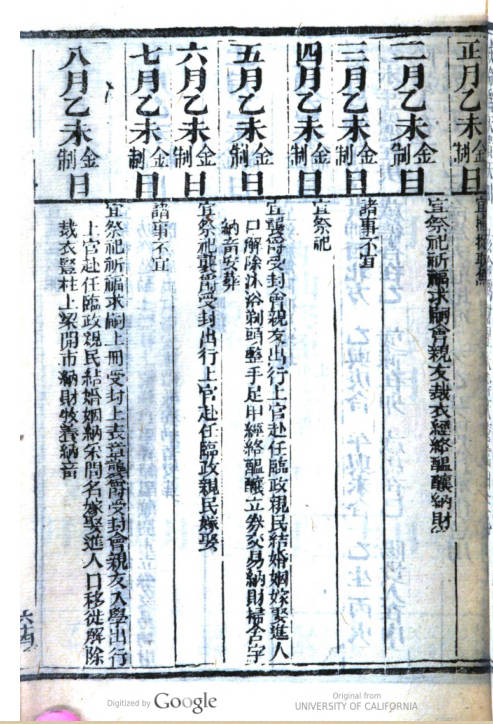 正月乙未金制日
二月乙未金制日
宜祭祀祈福求嗣會親友裁衣經絡醞釀納財
三月乙未金制日
諸事不宜
四月乙未金制日
宜祭祀
五月乙未金制日
宜襲爵受封會親友出行上官赴任臨政親民結婚姻嫁娶進人
口解除沐浴剃頭整手足甲經絡醞釀立券交易納財掃舍宇
納音安葬
六月乙未金制日
宜祭祀襲爵受封出行上官赴任臨政親民嫁娶
七月乙未金制日
諸事不宜
八月乙未金制日
宜祭祀祈福求嗣上冊受封上表章襲爵受封會親友入學出行
上官赴任臨政親民結婚姻納采問名嫁娶進人口移徙解除
裁衣豎柱上梁開市納財牧養納音
Digitized by Google
Original from
UNIVERSITY OF CALIFORNIA